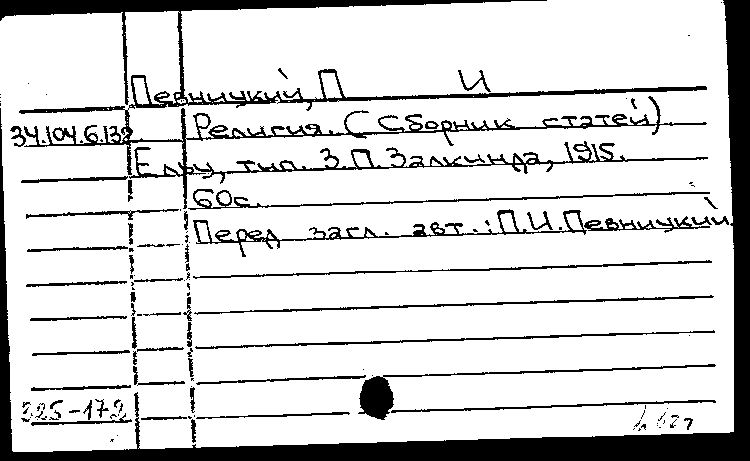 Певницкий, П И
34.104.6.132 Религия. (Сборник статей).
Ельц, тип. З.П. Залкинда, 1915.
60с.
Перед загл. авт.: П.И. Певницкий.
325-172